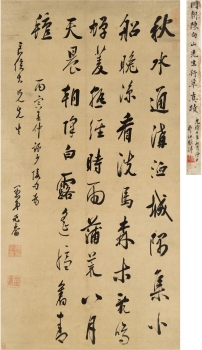 秋水通溝洫城隅集小
船晚涼看洗馬森木亂鳴
蟬菱熟經時雨蒲荒八月
天晨朝降白露遙憶舊青
氈
丙寅
先生
陳句山先生行草真蹟